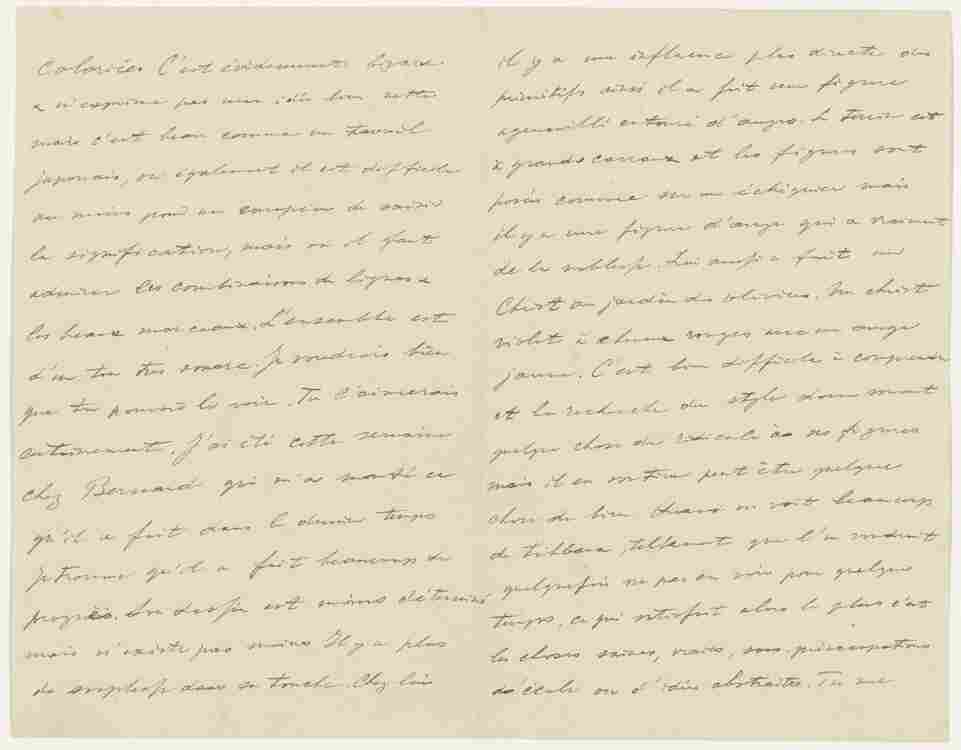 coloriées C'est évidemment bizare
& n'exprime pas une idée bien nette
mais c'est beau comme un travail
japonais, où également il est difficile
au moins pour un européen de saisir
la signification, mais où il faut
admirer les combinaisons de lignes &
les beaux morceaux. L'ensemble est
d'un ton très sonore. Je voudrais bien
que tu pourrais le voir. Tu l'aimerais
certainement. J'ai été cette semaine
chez Bernard qui m'a montré ce
qu'il a fait dans le dernier temps
Je trouve qu'il a fait beaucoup de
progrès. Son dessin est moins déterminé
mais n'existe pas moins Il y a plus
de souplesse dans sa touche. Chez lui
il y a une influence plus directe des
primitifs ainsi il a fait une figure
agenouillé entouré d'anges. Le terrain est
à grands carreaux et les figures sont
posées comme sur un échiquier mais
il y a une figure d'ange qui a vraiment
de la noblesse. Lui aussi a fait un
Christ au jardin des oliviers. Un christ
violet à cheveux rouges avec un ange
jaune. C'est bien difficile à comprendre
et la recherche du style donne souvent
quelque chose de ridicule à ses figures
mais il en sortira peut être quelque
chose de bien Quand on voit beaucoup
de tableaux, tellement que l'on voudrait
quelquefois ne pas en voir pour quelque
temps, ce qui satisfait alors le plus c'est
les choses saines, vraies, sans préoccupations
d'école ou d'idées abstraites. Tu me